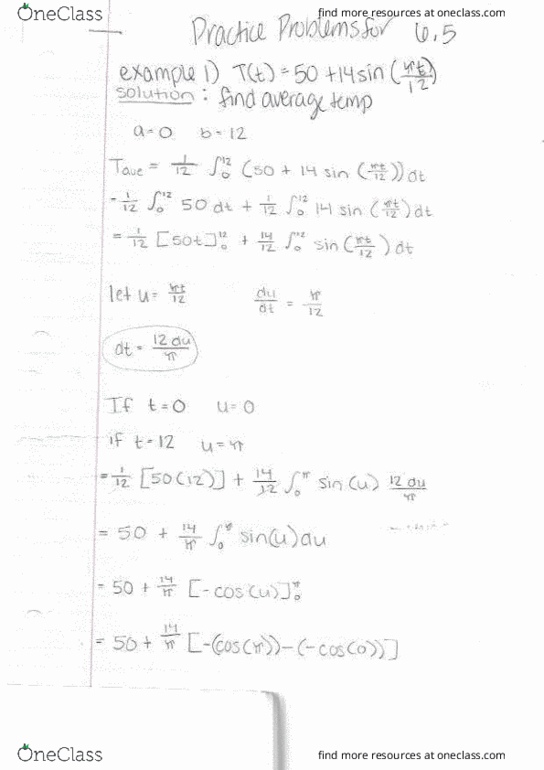 OneClass
find more resources at oneclass.com
Practice Problems for 6.5
example 1) T(t) = 50 + 14 sin (πt/12)
solution : find average temp
a=0 b=12
Tave = 1/12 ∫₀¹² (50 + 14 sin (πt/12)) dt
= 1/12 ∫₀¹² 50 dt + 1/12 ∫₀¹² 14 sin (πt/12) dt
= 1/12 [50t]₀¹² + 14/12 ∫₀¹² sin (πt/12) dt
let u = πt/12 du/dt = π/12
dt = 12 du/π
If t=0 u=0
if t=12 u=π
= 1/12 [50(12)] + 14/12 ∫₀^π sin (u) 12 du/π
= 50 + 14/π ∫₀^π sin(u) du
= 50 + 14/π [-cos(u)]₀^π
= 50 + 14/π [-(cos(π)) - (-cos(0))]
OneClass
find more resources at oneclass.com